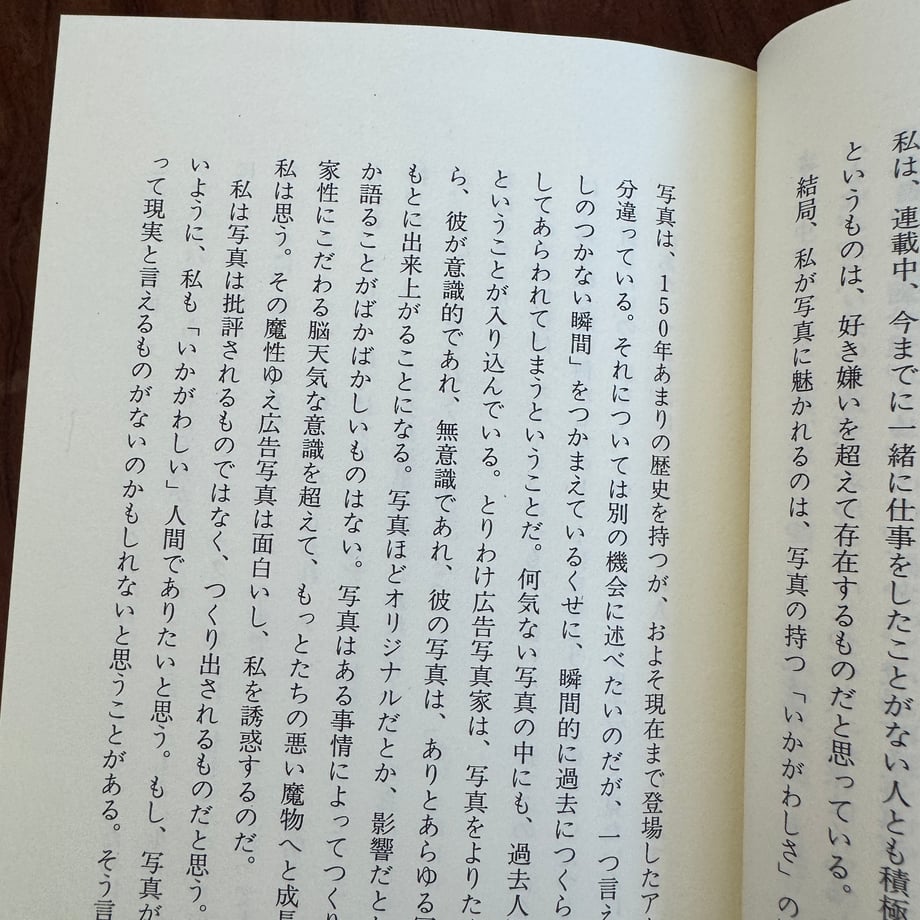 私は、連載中、今までに一緒に仕事をしたことがない人とも積極
というものは、好き嫌いを超えて存在するものだと思っている。
結局、私が写真に魅かれるのは、写真の持つ「いかがわしさ」の
写真は、150年あまりの歴史を持つが、およそ現在まで登場したア
分違っている。それについては別の機会に述べたいのだが、一つ言え
しのつかない瞬間」をつかまえているくせに、瞬間的に過去につくら
してあらわれてしまうということだ。何気ない写真の中にも、過去人
ということが入り込んでいる。とりわけ広告写真家は、写真をよりた
ら、彼が意識的であれ、無意識であれ、彼の写真は、ありとあらゆる
もとに出来上がることになる。写真ほどオリジナルだとか、影響だと
か語ることがばかばかしいものはない。写真はある事情によってつく
家性にこだわる脳天気な意識を超えて、もっとたちの悪い魔物へと成
私は思う。その魔性ゆえ広告写真は面白いし、私を誘惑するのだ。
私は写真は批評されるものではなく、つくり出されるものだと思う。
いように、私も「いかがわしい」人間でありたいと思う。もし、写真が
って現実と言えるものがないのかもしれないと思うことがある。そう言